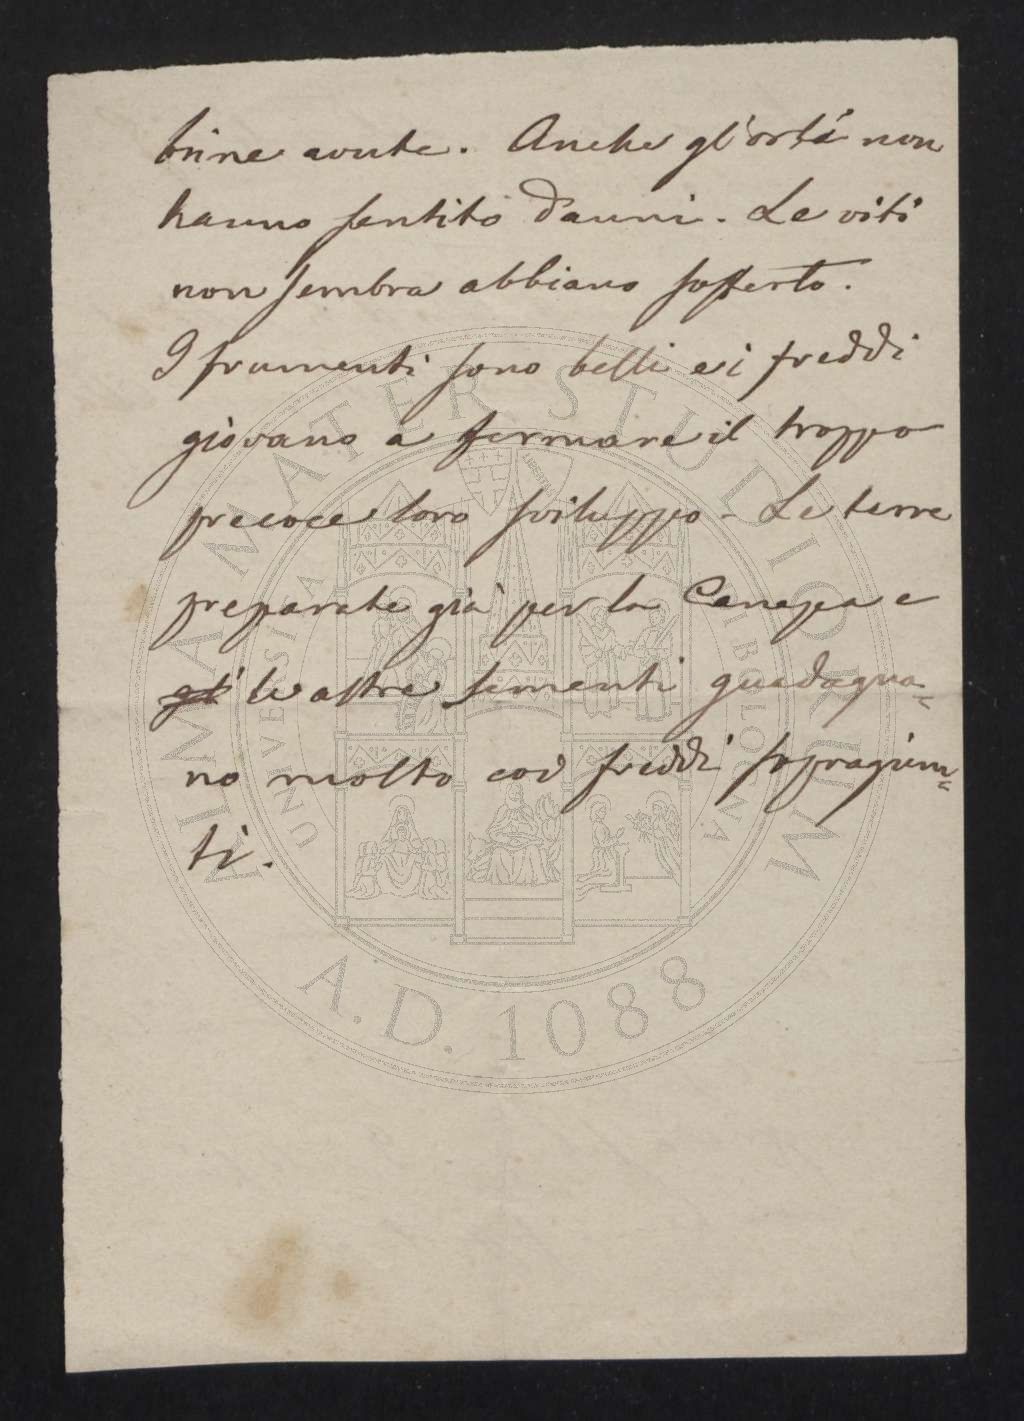 brine avute. Anche gl'orti non
hanno sentito danni. Le viti
non sembra abbiano sofferto.
I frumenti sono belli e i freddi
giovano a fermare il troppo
precoce loro sviluppo - Le terre
preparate già per la Canepa e
gl' le altre sementi guadagna=
no molto coi freddi sopragiun=
ti.
ALMA MATER STUDIORUM
UNIVERSITÀ DI BOLOGNA
A.D. 1088